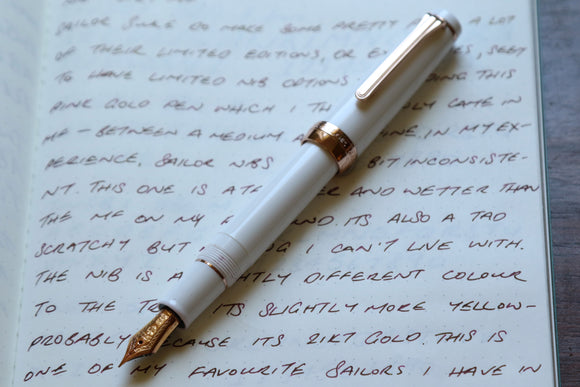 SAILOR SURE DO MAKE SOME PRETTY A LOT
OF THEIR LIMITED EDITIONS, OR SEEM
TO HAVE LIMITED NIB OPTIONS THIS
PINK GOLD PEN WHICH I ONLY CAME IN
MF - BETWEEN A MEDIUM FINE. IN MY EX-
PERIENCE, SAILOR NIBS BIT INCONSISTE-
NT. THIS ONE IS A AND WETTER THAN
THE MF ON MY ITS ALSO A TAD
SCRATCHY BUT I CAN'T LIVE WITH.
THE NIB IS A DIFFERENT COLOUR
TO THE ITS SLIGHTLY MORE YELLOW-
PROBABLY BECAUSE ITS 21KT GOLD. THIS IS
ONE OF MY FAVOURITE SAILORS I HAVE IN